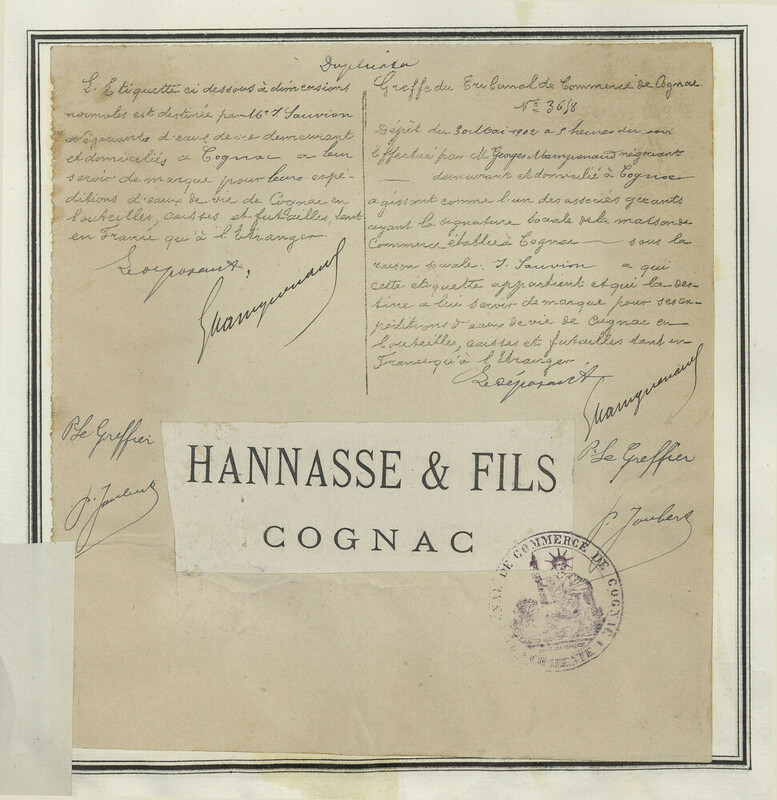 Duplicata
L'Etiquette ci dessous à dimensions
normales est destinée par Mr J. Sauvion
négociants d'eaux de vie demeurant
et domiciliés à Cognac a leur
servir de marque pour leurs expé-
ditions d'eaux de vie de Cognac en
bouteilles, caisses et futailles, tant
en France qu'à l'Etranger.
Le déposant,
Greffe du Tribunal de Commerce de Cognac
No 3658
Dépôt du 30 Mai 1902 a 5 heures du soir
Effectué par M Georges négociant
demeurant et domicilié à Cognac
agissant comme l'un des associés gérants
ayant la signature sociale de la maison de
Commerce établie à Cognac — sous la
raison sociale: J. Sauvion a qui
cette étiquette appartient et qui la des-
tine a lui servir de marque pour ses ex-
péditions d'eaux de vie de Cognac en
bouteilles, caisses et futailles tant en
France qu'à l'Etranger.
Le déposant
P. Le Greffier
P. Le Greffier
HANNASSE & FILS
COGNAC
J. Joubert
J. Joubert
TRIBUNAL DE COMMERCE DE COGNAC